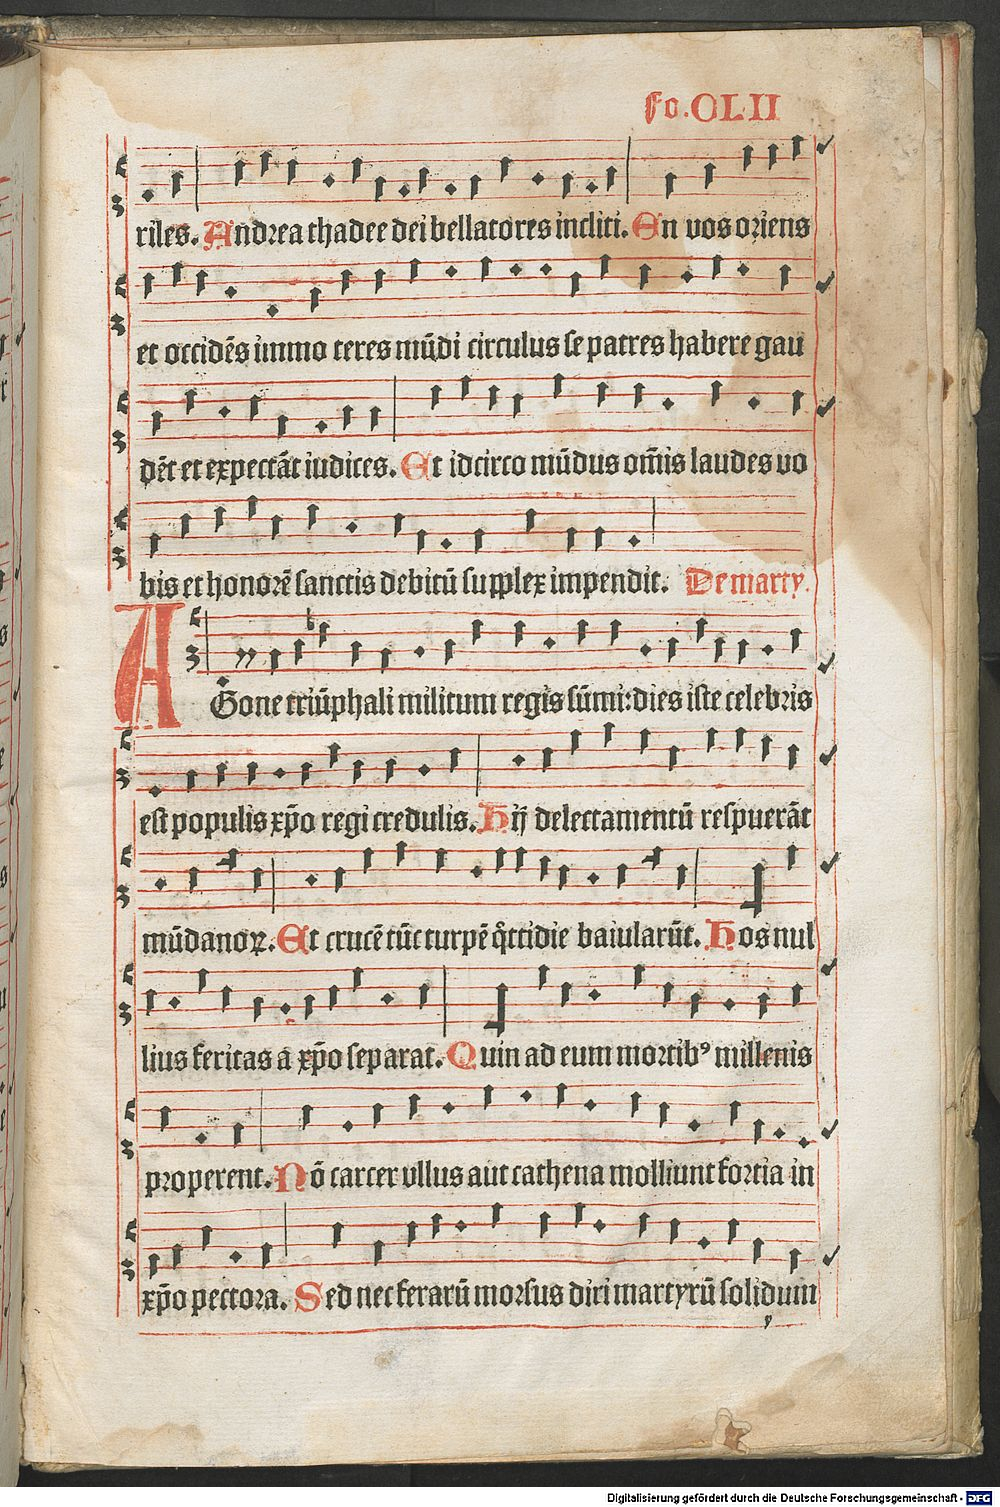 fo.CLII
riles. Andrea thadee dei bellatores incliti. En vos oriens
et occidēs immo teres mūdi circulus se patres habere gau
dēt et expectāt iudices. Et idcirco mūdus om̄is laudes vo
bis et honorē sanctis debitū supplex impendit. De marty.
AGone triūphali militum regis sūmi: dies iste celebris
est populis xp̄o regi credulis. Hij delectamentū respuerāt
mūdanoꝝ. Et crucē tūc turpē q̊ttidie baiularūt. Hos nul
lius feritas a xp̄o separat. Quin ad eum mortibꝰ millenis
properent. Nō carcer vllus aut cathena molliunt fortia in
xp̄o pectora. Sed nec ferarū morsus diri martyrū solidum
Digitalisierung gefördert durch die Deutsche Forschungsgemeinschaft - DFG